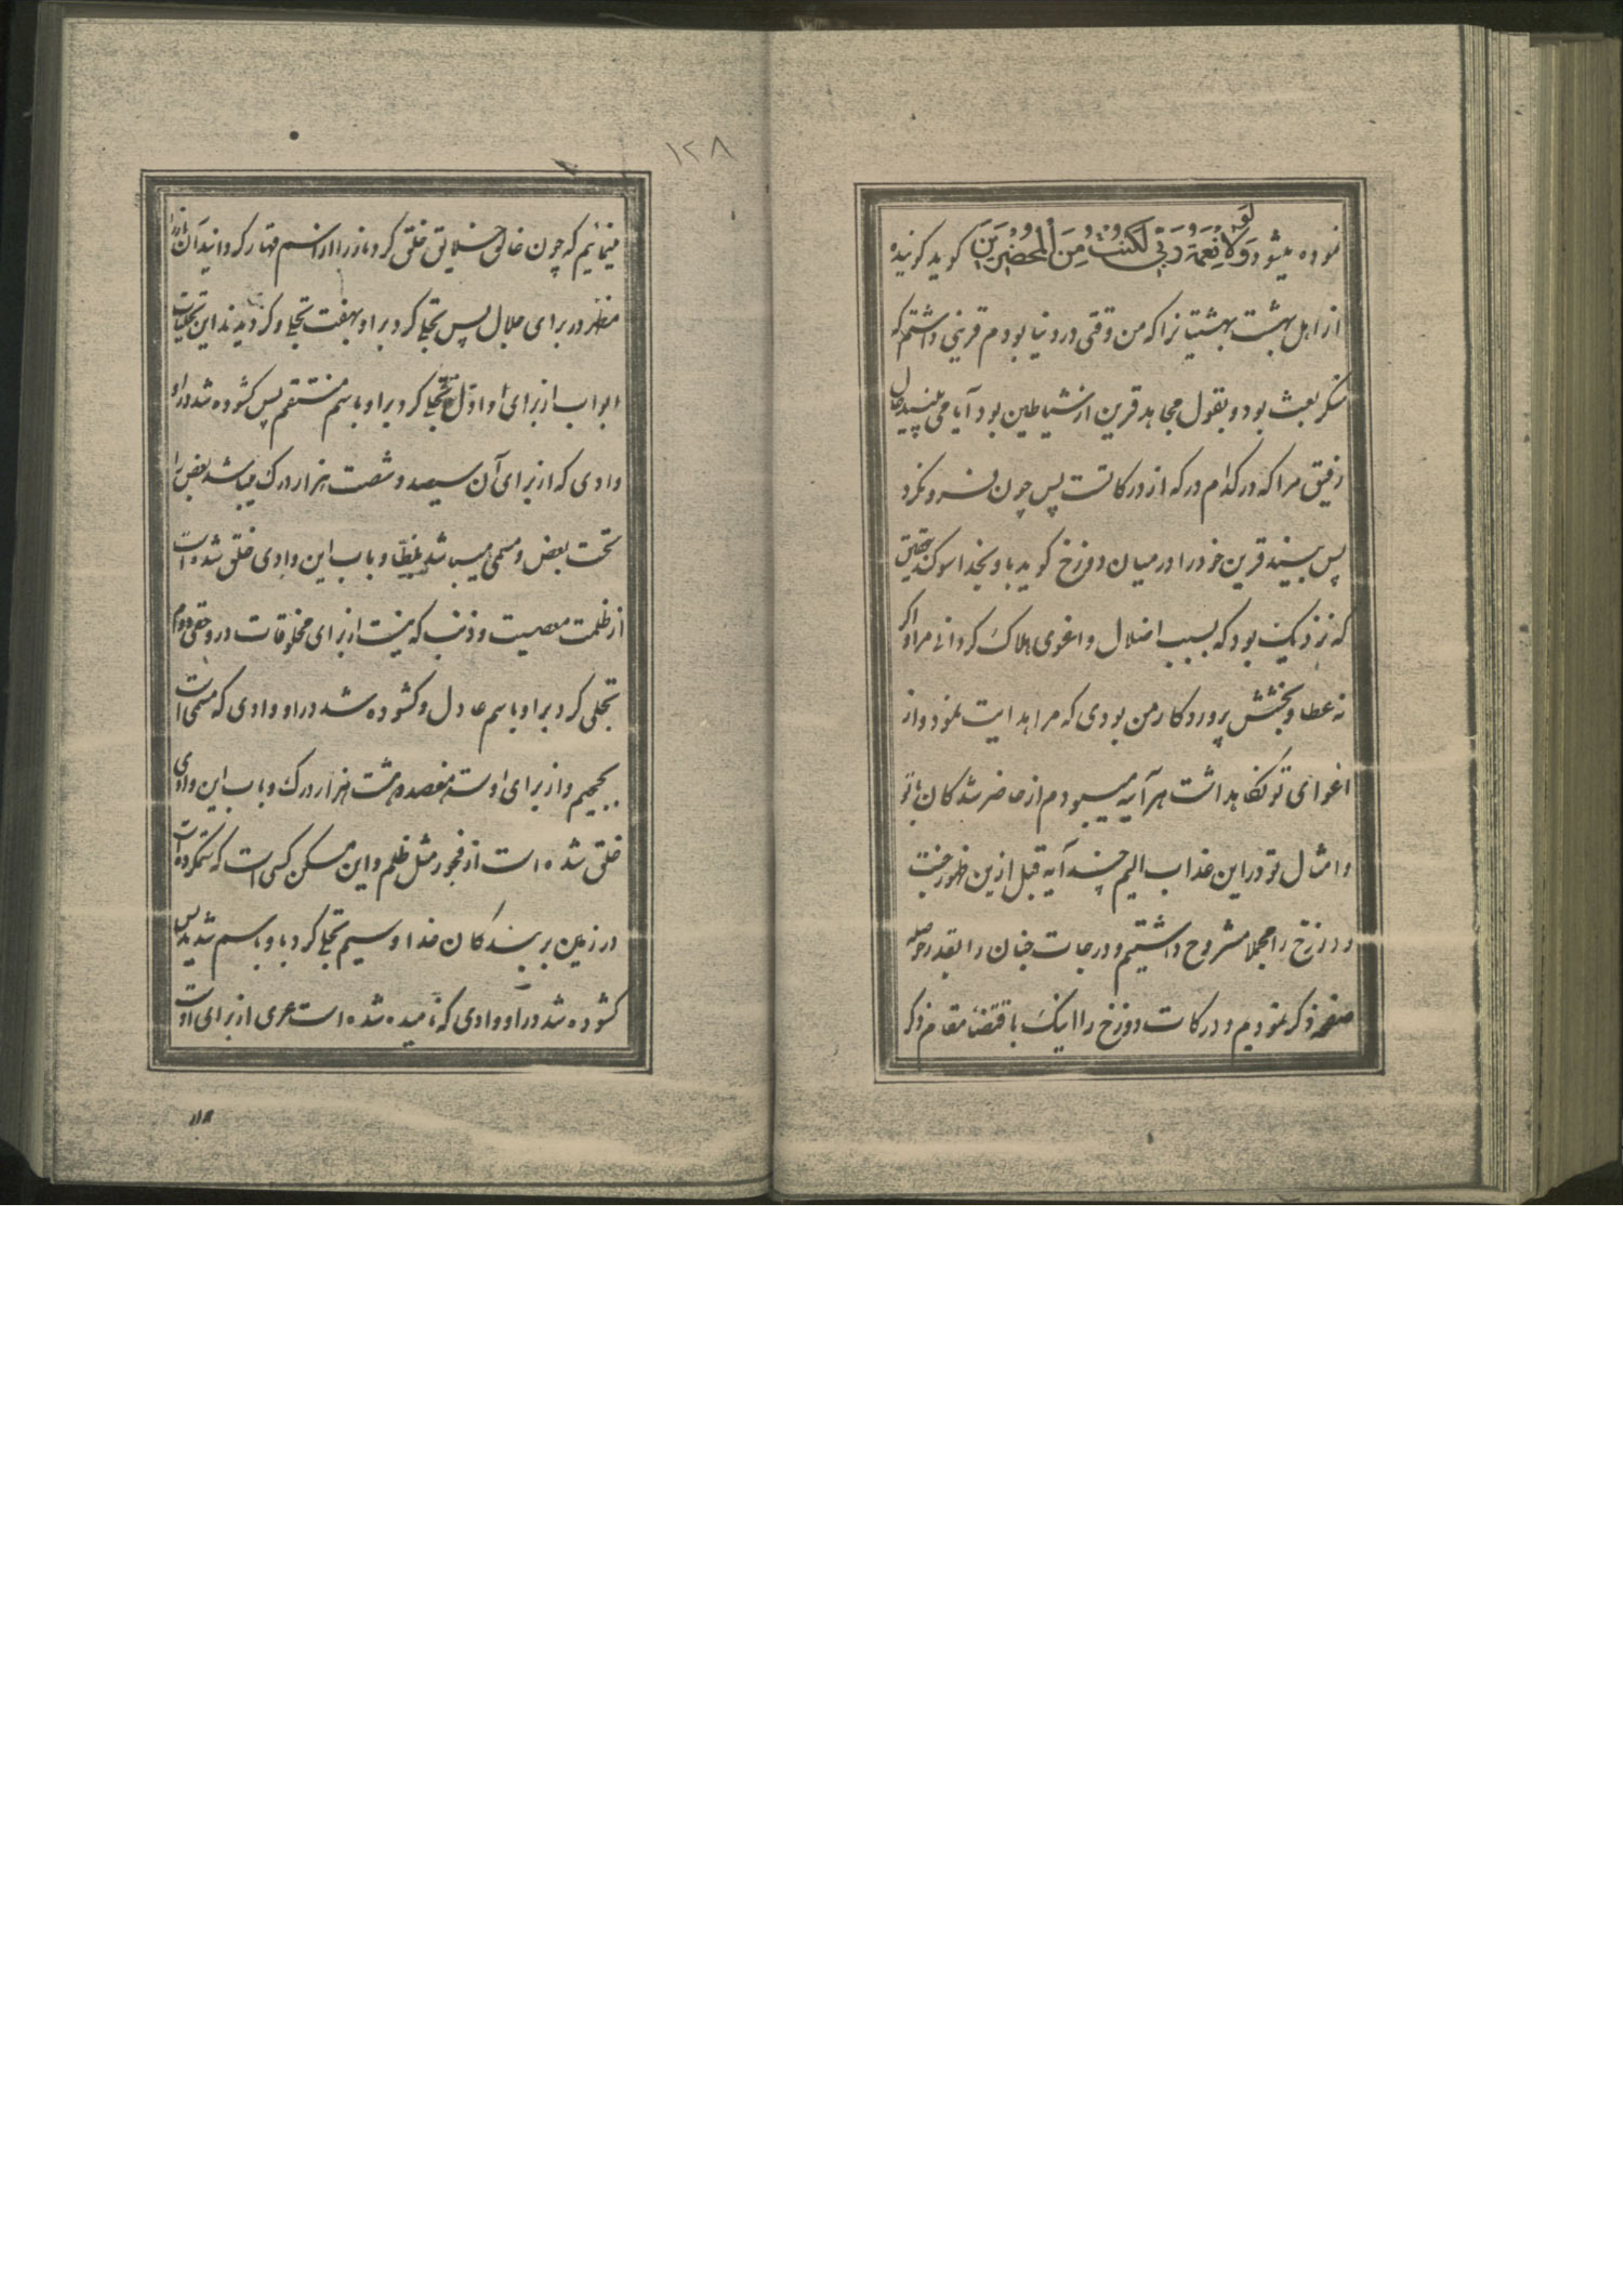 نموده میشود وَلَولا نِعمَةُ رَبّی لَکُنتُ مِنَ المُحضَرینَ کوید کوینده
از اهل بهشت بهشتیانرا که من وقتی در دنیا بودم قرینی داشتم که
منکر بعث بود و بقول مجاهد قرین از شیاطین بود آیا می بینید حال
رفیق مرا که در کدام درکه از درکاتست پس چون فرو نکرد
پس ببیند قرین خود را در میان دوزخ کوید باو بخدا سوکند بتحقیق
که نزدیک بود که بسبب اضلال و اغوی هلاک کردانی مرا و اکر
نه عطا و بخشش پروردکار من بودی که مرا هدایت نمود و از
اغوای تو نکاهداشت هرآینه میبودم از حاضر شدکان با تو
و امثال تو در این عذاب الیم چند آیه قبل ازین ظهور جنت
و دوزخ را مجملا مشروح داشتیم و درجات جنان را بقدر حوصله
صفحه ذکر نمودیم و درکات دوزخ را اینک باقتضاء مقام ذکر
١٢٨
مینمائیم که چون خالق خلایق خلق کرد نار را از اسم قهار کردانید آن را
مظهر در برای جلال پس تجلی کرد براو بهفت تجلی و کردیدند این تجلیات
ابواب از برای او اول تجلی کرد براو باسم منتقم پس کشوده شد در او
وادی که از برای آن سیصد و شصت هزار درک میباشد بعض را
تحت بعض و مسمی میباشد بلظی و باب این وادی خلق شده است
از ظلمت معصیت و ذنب که نیست از برای مخلوقات در او حقی دوم
تجلی کرد براو باسم عادل و کشوده شد در او وادی که مسمی است
بجحیم و از برای اوست هفصد و بیست هزار درک و باب این وادی
خلق شده است از فجور مثل ظلم و این مسکن کسی است که ستمکرده است
در زمین بر بندکان خدا و سیم تجلی کرد باو باسم شدید پس
کشوده شد در او وادی که نامیده شده است عری از برای اوست